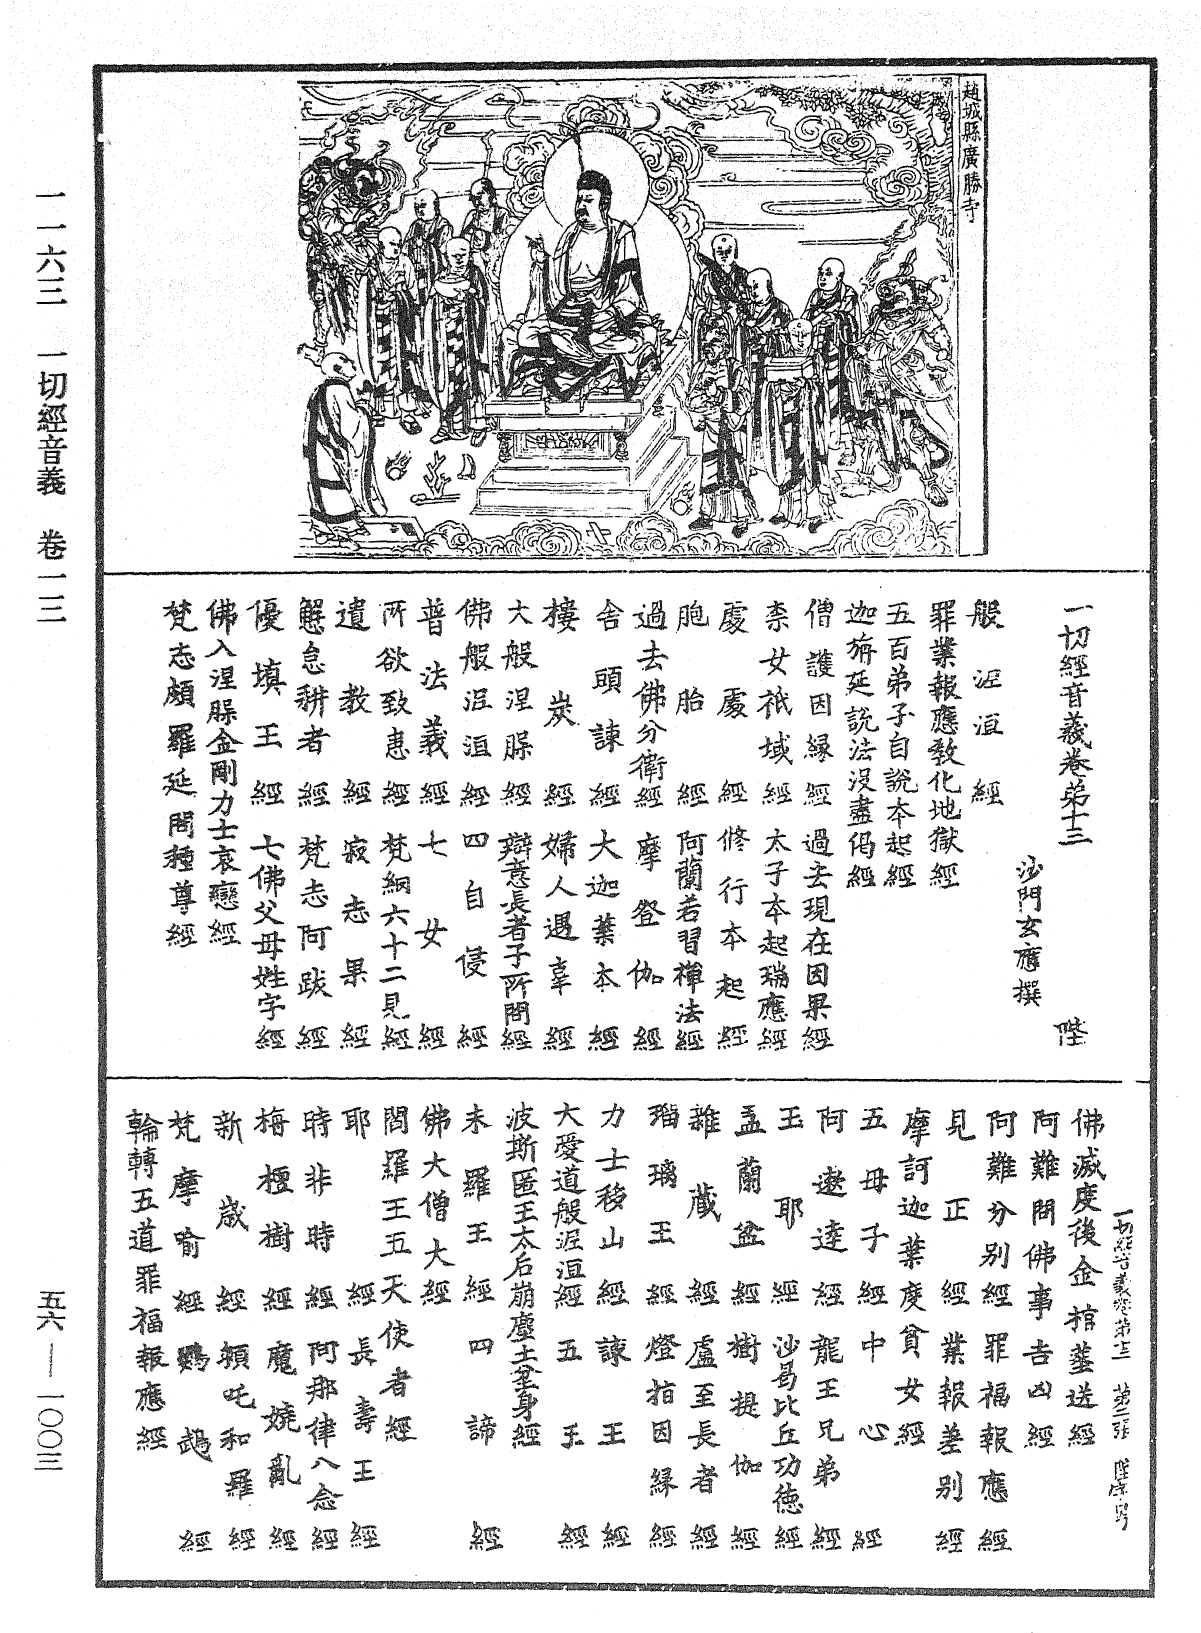 一一六三　一切經音義　卷一三
五六—一〇〇三
趙城縣廣勝寺
一切經音義卷第十三　陛
沙門玄應撰
般泥洹經
罪業報應教化地獄經
五百弟子自說本起經
迦旃延說法沒盡偈經
僧護因縁經　過去現在因果經
柰女祇域經　太子本起瑞應經
處處經　修行本起經
胞胎經　阿蘭若習禪法經
過去佛分衛經　摩登伽經
舍頭諫經　大迦葉本經
樓炭經　婦人遇辜經
大般涅槃經　辯意長者子所問經
佛般泥洹經　四自侵經
普法義經　七女經
所欲致患經　梵網六十二見經
遺教經　寂志果經
懈怠耕者經　梵志阿颰經
優填王經　七佛父母姓字經
佛入涅槃金剛力士哀戀經
梵志頗羅延問種尊經
佛滅度後金棺葬送經
阿難問佛事吉凶經
阿難分別經　罪福報應經
見正經　業報差別經
摩訶迦葉度貧女經
五母子經　中心經
阿遬達經　龍王兄弟經
玉耶經　沙曷比丘功德經
盂蘭盆經　樹提伽經
雜藏經　盧至長者經
瑠璃王經　燈指因緑經
力士移山經　諫王經
大愛道般泥洹經　五王經
波斯匿王太后崩塵土坌身經
末羅王經　四諦經
佛大僧大經
閻羅王五天使者經
耶　經　長壽王經
時非時經　阿那律八念經
栴檀樹經　魔嬈亂經
新歲經　頼吒和羅經
梵摩喻經　鸚鵡經
輪轉五道罪福報應經
一切經音義卷第十三　第二張　陛字号